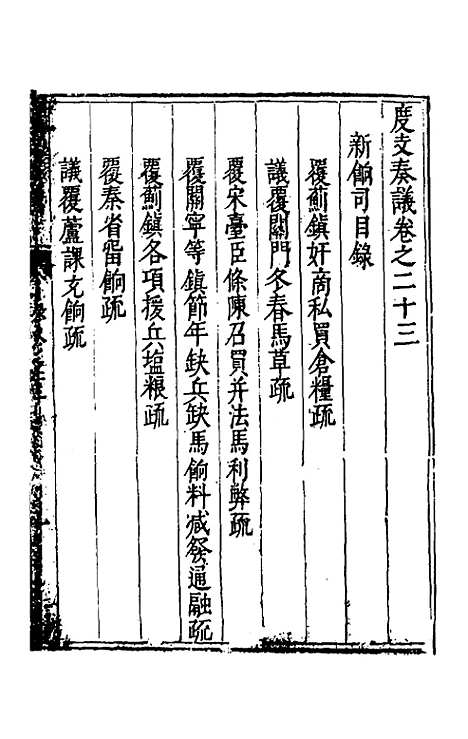 度支奏議卷之二十三
新餉司目錄
覆薊鎮奸商私買倉糧疏
議覆關門冬春馬草疏
覆宋臺臣條陳召買并法馬利弊疏
覆關寧等鎮節年缺兵缺馬餉料减發通融疏
覆薊鎮各項援兵塩粮疏
覆秦省留餉疏
議覆蘆課充餉疏